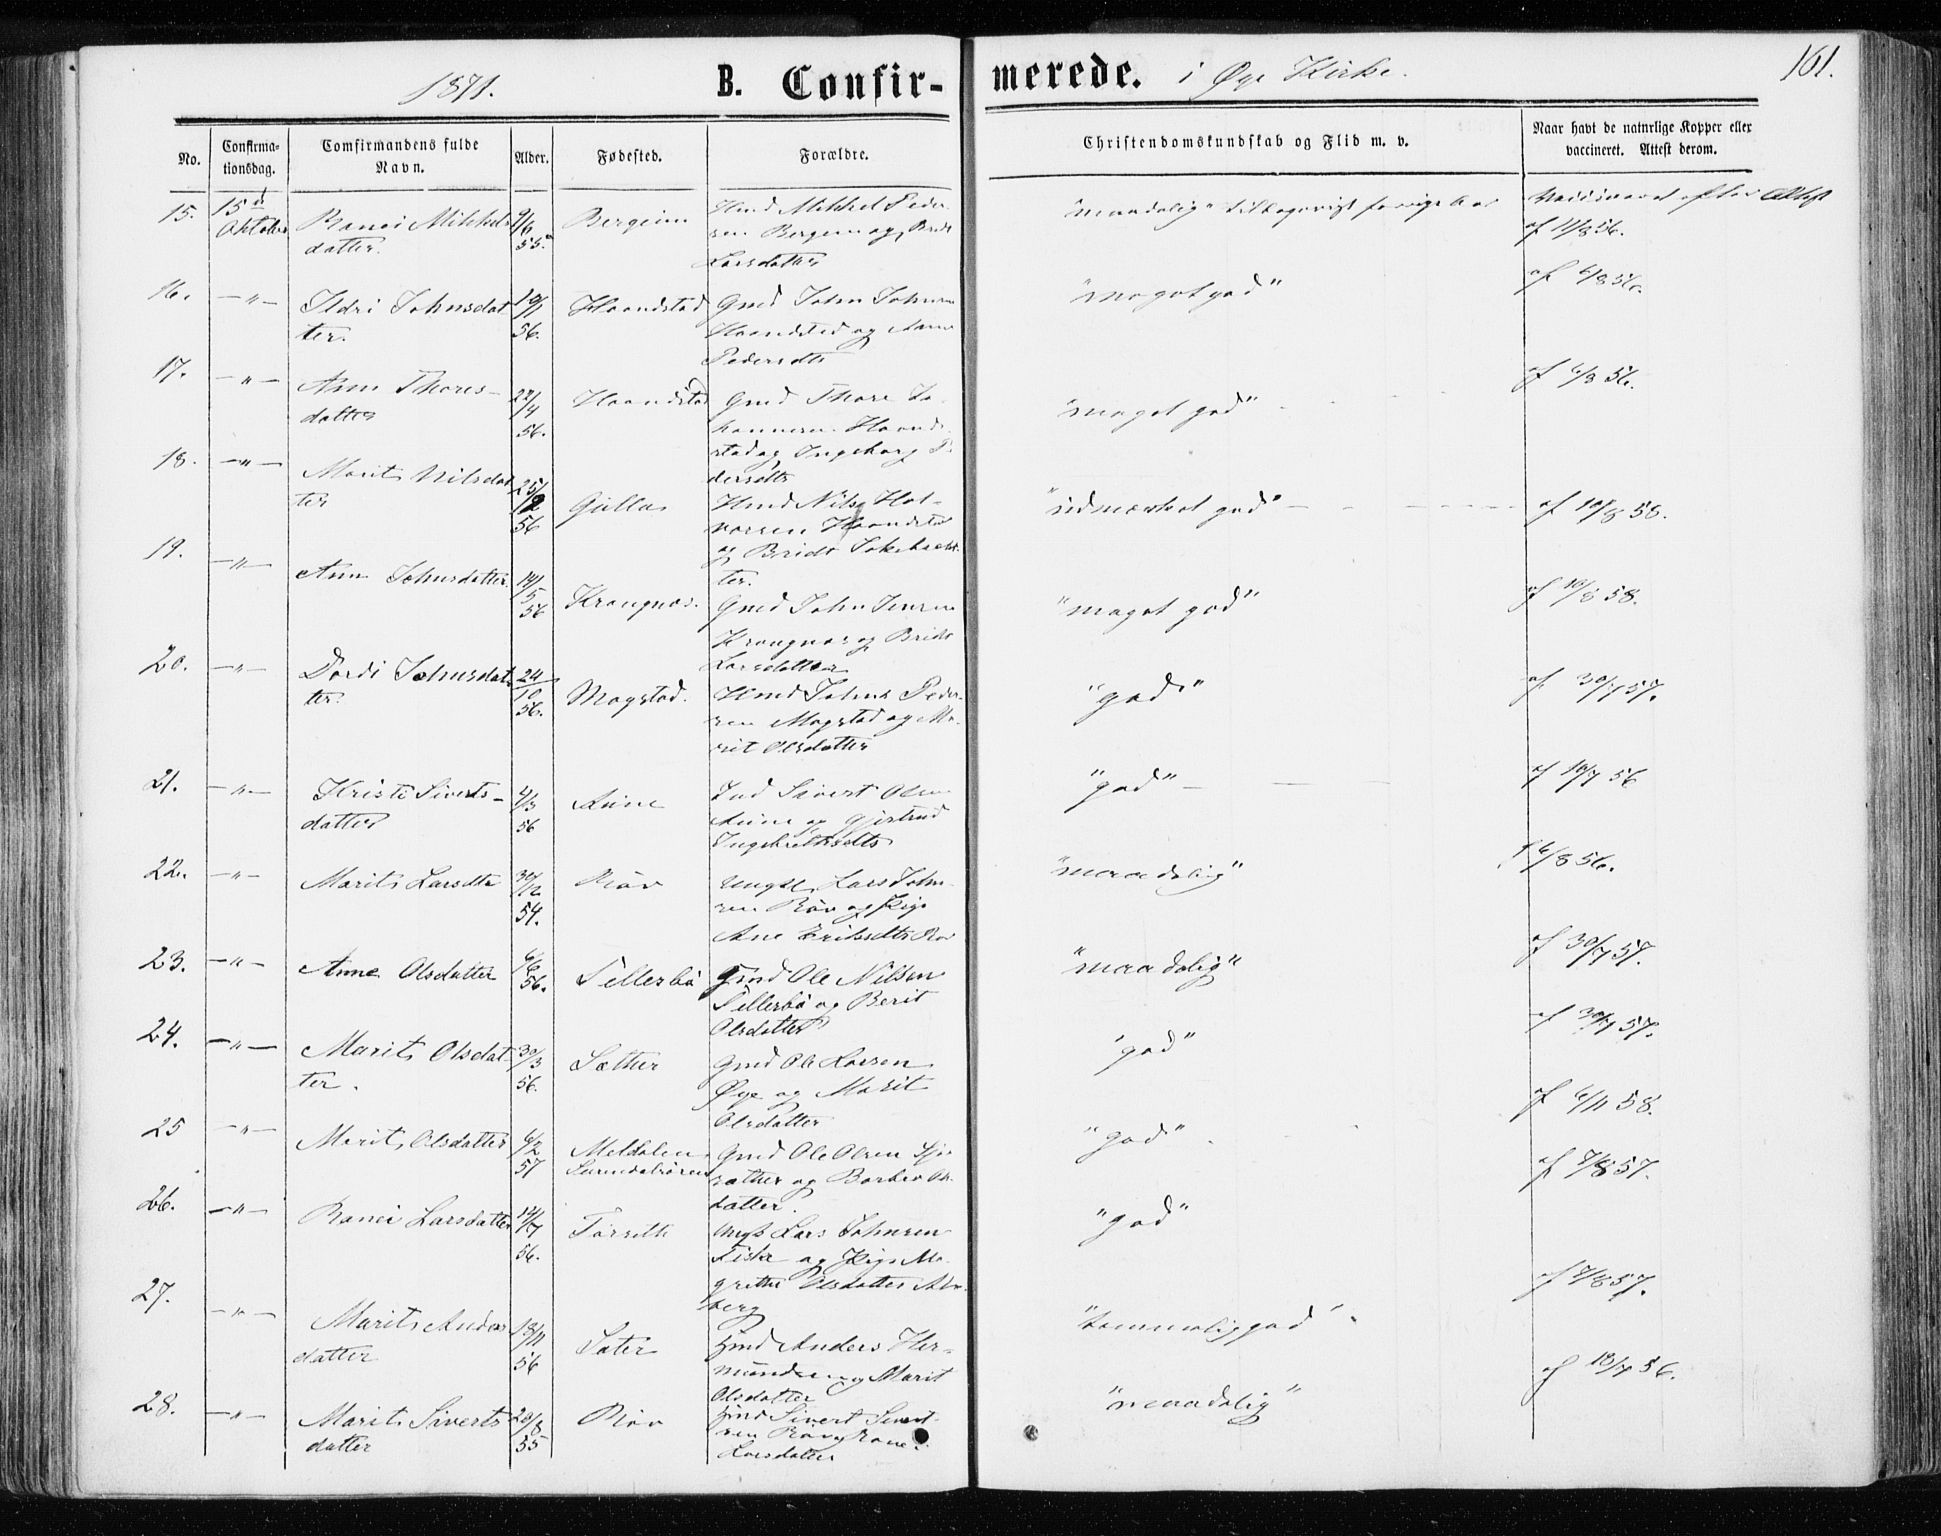 1871.
B. Confirmerede.
i Øye Kirke.
161.
No.
Confirmationsdag.
Comfirmandens fulde Navn.
Alder.
Fødested.
Forældre.
Christendomskundskab og Flid m. v.
Naar havt de naturlige Kopper eller vaccineret. Attest derom.
15. 15de Oktober Ranei Mikkelsdatter. 9/6 55. Bergeim
Hmd Mikkel Pedersen Bergem og Brit Larsdatter
"maadelig"
Vaccineret efter Attest af 11/8 56.
16. -"- Ildri Johnsdatter. 19/1 56. Haandstad
Gmd John Johnsen Haandstad og Ane Pedersdtr
"meget god" af 6/8 56.
17. -"- Ane Thoresdatter 22/4 56. Haandstad
Gmd Thore Johannesen Haandstad og Ingeborg Pedersdtr
"meget god" af 6/8 56.
18. -"- Marit Nilsdatter 25/12 56 Gulla
Hmd Nils Halvorsen Haandstad og Brit
"udmærket god" af 10/8 58.
19. -"- Ane Johnsdatter 14/5 56 Krangnæs.
Gmd John Jensen Krangnæs og Brit Larsdatter
"meget god" af 10/8 58.
20. -"- Dordi Johnsdatter. 24/10 56. Mogstad.
Hmd John Pedersen Mogstad og Marit Olsdatter
"god" af 30/7 57.
21. -"- Kristi Sivertsdatter 4/3 56 Aune
Ind Sivert Olsen Aune og Gjertrud Ingebrethsdtr
"god" af 10/7 56
22. -"- Marit Larsdtr 30/12 54. Røv
Ungk. Lars Johnsen Røv og Pige Ane Eriksdtr Røv
"maadelig" af 6/8 56.
23. -"- Anne Olsdatter 6/6 56. Tellesbø
Gmd Ole Nilsen Tellesbø og Berit Olsdatter
"maadelig" af 30/7 57.
24. -"- Marit Olsdatter. 30/3 56. Sæther
Gmd Ole Larsen Øye og Marit Olsdatter
"god" af 30/7 57.
25 -"- Marit Olsdatter 6/2 57 Meldalen Surendalsøren
Gmd Ole Olsen og Barbro Olsdatter.
"god" af 6/11 58.
26. -"- Ranei Larsdatter 14/7 56. Torsetth
Ungk Lars Johnsen Fiske og Pige Magrethe Olsdatter
"god" af 7/8 57.
27. -"- Marit Andersdatter 18/11 56 Sæter
Hmd Anders Hermundsen og Marit Olsdatter
"temmelig god" af 7/8 57.
28. -"- Marit Sivertsdatter 20/8 55 Røv
Hmd Sivert Sivertsen Røv og Ranei Larsdatter
"maadelig" af 18/7 56.